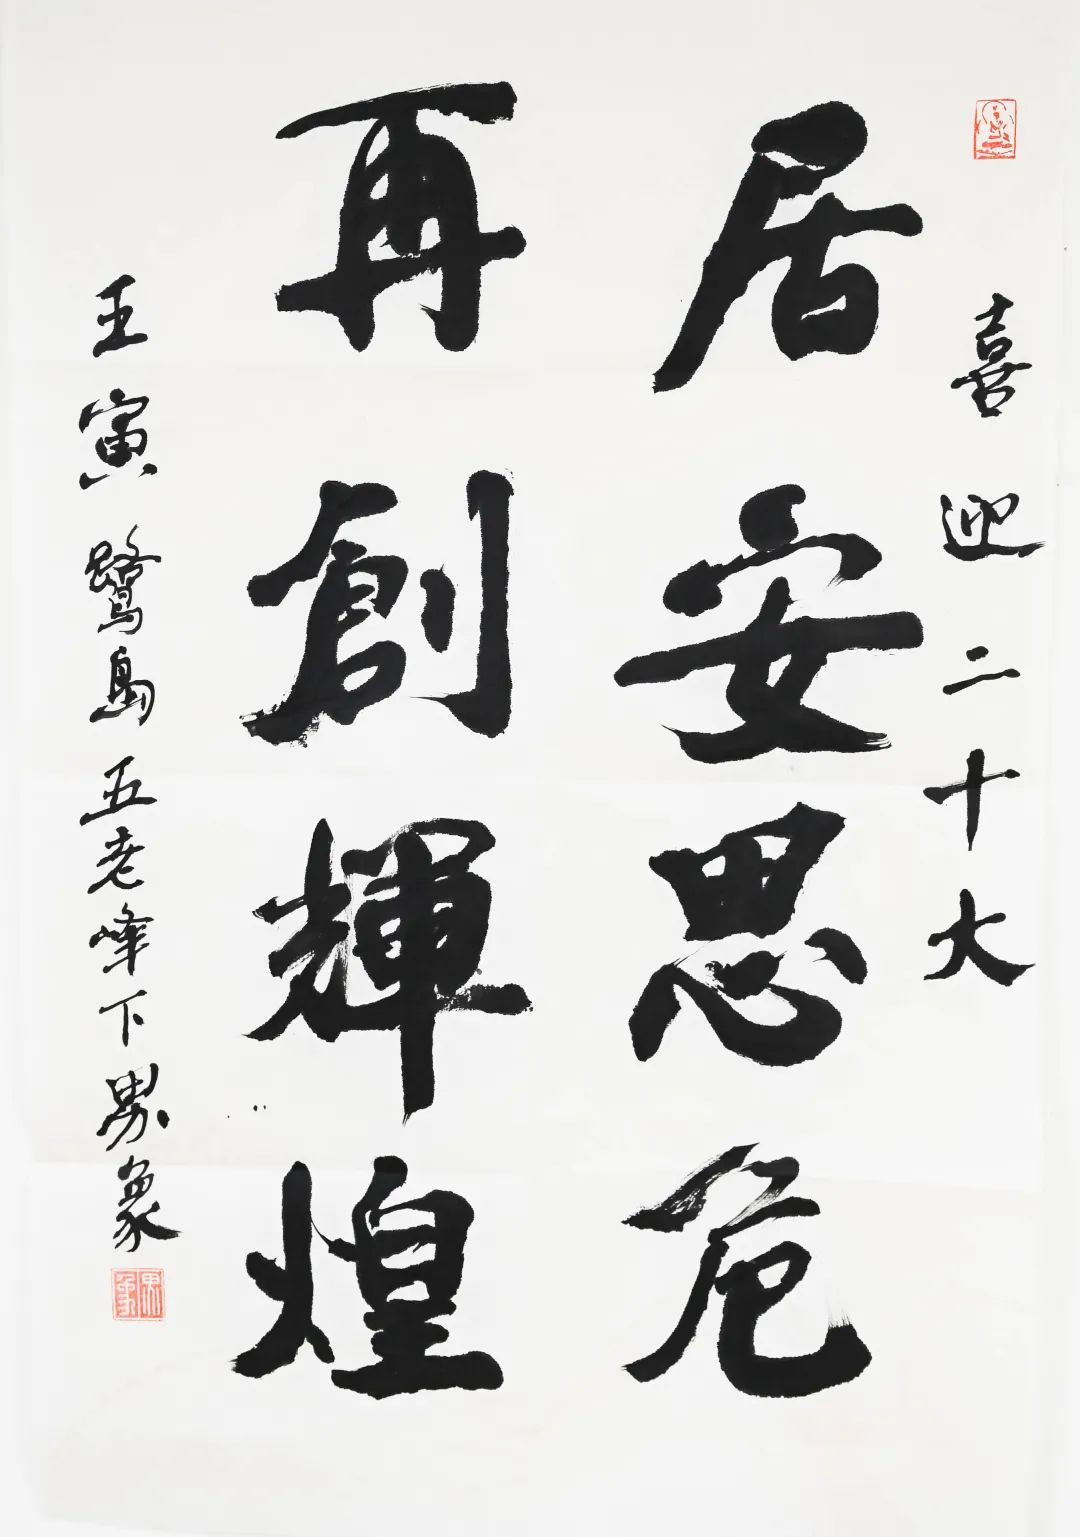 喜迎二十大
居安思危
再創輝煌
壬寅鷺島五老峰下界象
界象